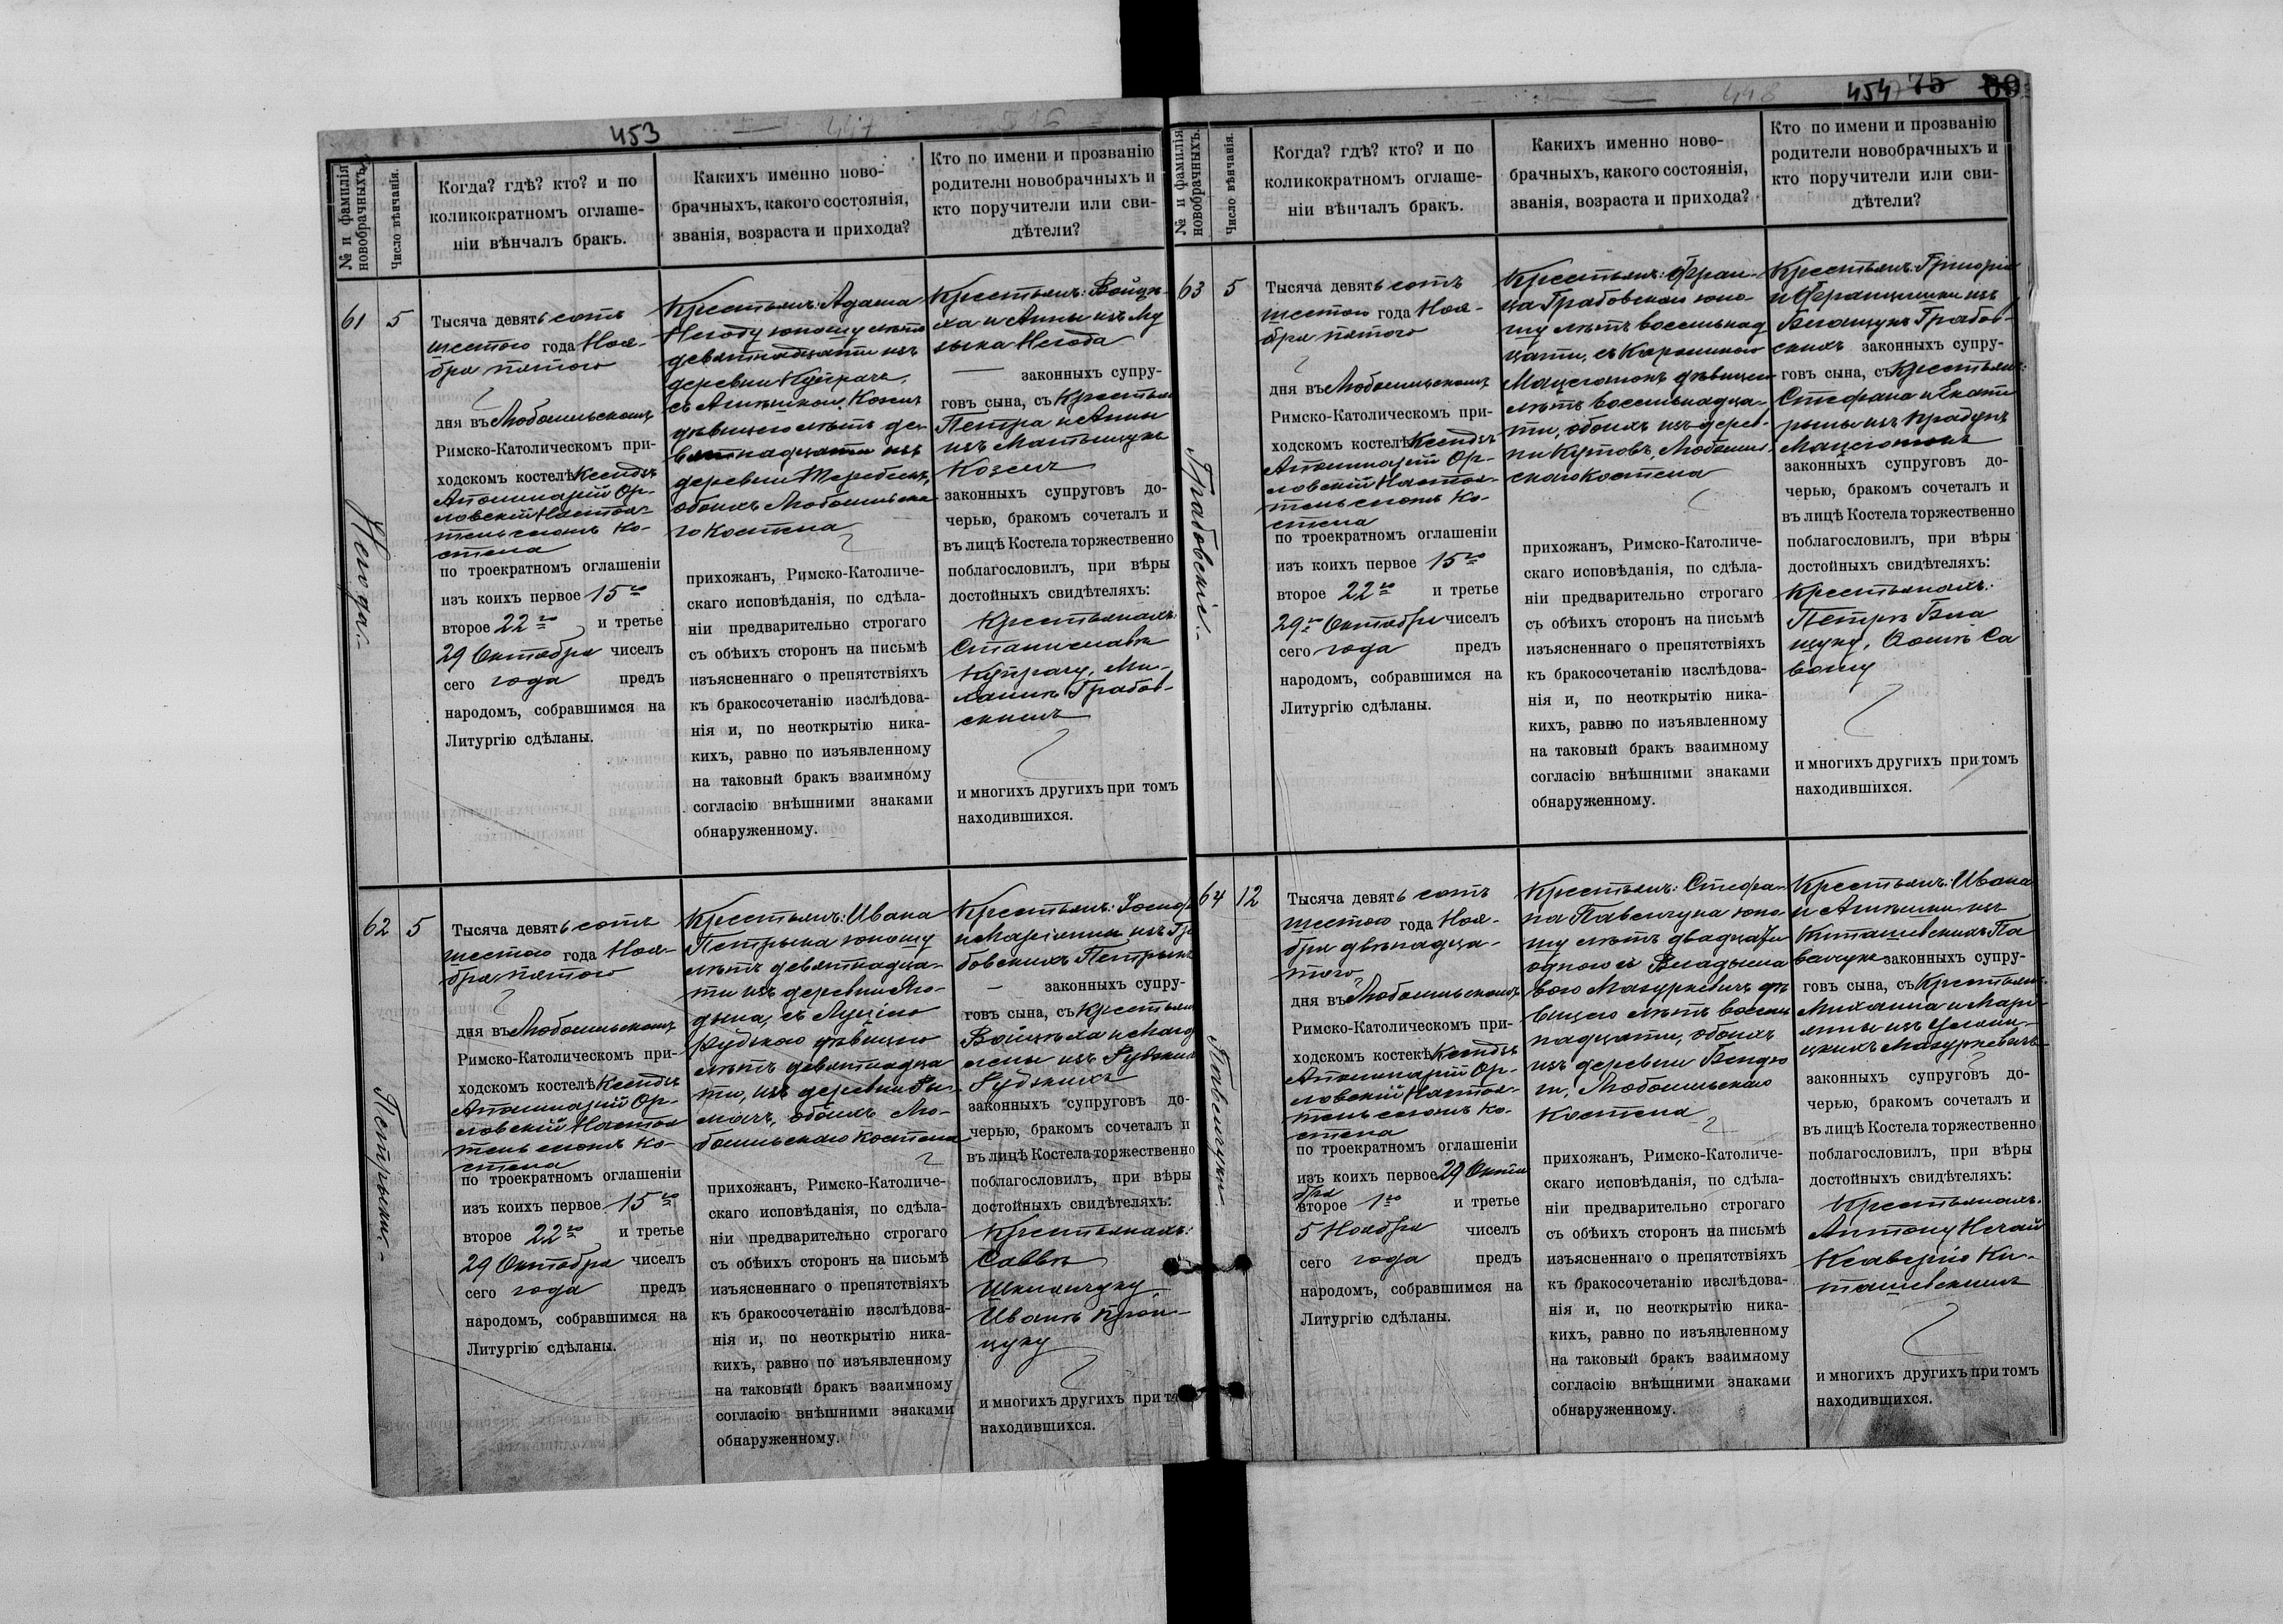 453
№ и фамилія новобрачныхъ.
Число вѣнчанія.
Когда? гдѣ? кто? и по
коликократномъ оглаше-
ніи вѣнчалъ бракъ.
Какихъ именно ново-
брачныхъ, какого состоянія,
званія, возраста и прихода?
Кто по имени и прозванію
родители новобрачныхъ и
кто поручители или сви-
дѣтели?
61
5
Негода.
Тысяча девять сотъ
шестого года Ноя-
бря пятого
дня въ Любомльскомъ
Римско-Католическомъ при-
ходскомъ костелѣ Ксендзъ
Аполинарій Ор-
ловскій Настоя-
тель сего Ко-
стела
по троекратномъ оглашеніи
изъ коихъ первое 15го
второе 22го и третье
29 Октября чиселъ
сего года предъ
народомъ, собравшимся на
Литургію сдѣланы.
Крестьянъ: Адама
Негоду юношу лѣтъ
девятнадцати изъ
деревни Куправъ,
съ Агнѣшкою Козелъ
дѣвицею лѣтъ де-
вятнадцати изъ
деревни Теребейъ,
обоихъ Любомльска-
го Костела
прихожанъ, Римско-Католиче-
скаго исповѣданія, по сдѣла-
ніи предварительно строгаго
съ обѣихъ сторонъ на письмѣ
изъясненнаго о препятствіяхъ
къ бракосочетанію изслѣдова-
нія и, по неоткрытію ника-
кихъ, равно по изъявленному
на таковый бракъ взаимному
согласію внѣшними знаками
обнаруженному.
Крестьянъ: Войцѣ-
ха и Анны изъ
Негода
законныхъ супру-
говъ сына, съ Крестьянъ
Петра и Анны
изъ Матвѣщукъ
Козелъ
законныхъ супруговъ до-
черью, бракомъ сочеталъ и
въ лицѣ Костела торжественно
поблагословилъ, при вѣры
достойныхъ свидѣтеляхъ:
Крестьянахъ:
Станиславѣ
Купрачу, Ми-
хаилѣ Грабов-
скимъ
и многихъ другихъ при томъ
находившихся.
62
5
Петрыки.
Тысяча девять сотъ
шестого года Ноя-
бря пятого
дня въ Любомльскомъ
Римско-Католическомъ при-
ходскомъ костелѣ Ксендзъ
Аполинарій Ор-
ловскій Настоя
тель сего Ко-
стела
по троекратномъ оглашеніи
изъ коихъ первое 15го
второе 22го и третье
29 Октября чиселъ
сего года предъ
народомъ, собравшимся на
Литургію сдѣланы.
Крестьянъ: Ивана
Петрыка юношу
лѣтъ девятнадца-
ти изъ деревни Яго-
дына, съ Луціею
Рудзкою дѣвицею
лѣтъ девятнадца
ти, изъ деревни Ры-
мачъ, обоихъ Лю-
бомльскаго Костела
прихожанъ, Римско-Католиче-
скаго исповѣданія, по сдѣла-
ніи предварительно строгаго
съ обѣихъ сторонъ на письмѣ
изъясненнаго о препятствіяхъ
къ бракосочетанію изслѣдова-
нія и, по неоткрытію ника-
кихъ, равно по изъявленному
на таковый бракъ взаимному
согласію внѣшними знаками
обнаруженному.
Крестьянъ: Іосифа
и Маріанны изъ Гра
бовскихъ Петрыкъ
законныхъ супру-
говъ сына, съ Крестьянъ
Войцѣха и Магд
алены изъ Рудзкихъ
Рудзкихъ
законныхъ супруговъ до-
черью, бракомъ сочеталъ и
въ лицѣ Костела торжественно
поблагословилъ, при вѣры
достойныхъ свидѣтеляхъ:
Крестьянахъ:
Саввѣ
Шкляпчуку
Иванѣ
и многихъ другихъ при то
находившихся.
454 75 80
№ и фамилія новобрачныхъ.
Число вѣнчанія.
Когда? гдѣ? кто? и по
коликократномъ оглаше-
ніи вѣнчалъ бракъ.
Какихъ именно ново-
брачныхъ, какого состоянія,
званія, возраста и прихода?
Кто по имени и прозванію
родители новобрачныхъ и
кто поручители или сви-
дѣтели?
63
5
Грабовскіе.
Тысяча девять сотъ
шестого года Ноя-
бря пятого
дня въ Любомльскомъ
Римско-Католическомъ при-
ходскомъ костелѣ Ксендзъ
Аполинарій Ор-
ловскій Настоя-
тель сего Ко-
стела
по троекратномъ оглашеніи
изъ коихъ первое 15го
второе 22го и третье
29го Октября чиселъ
сего года предъ
народомъ, собравшимся на
Литургію сдѣланы.
Крестьянъ: Фран-
ца Грабовскаго юно-
шу лѣтъ восемнад
цати, съ Каролиною
дѣвицею
лѣтъ восемнадца-
ти, обоихъ изъ дерев-
ни Кутовъ, Любомль-
скаго Костела
прихожанъ, Римско-Католиче-
скаго исповѣданія, по сдѣла-
ніи предварительно строгаго
съ обѣихъ сторонъ на письмѣ
изъясненнаго о препятствіяхъ
къ бракосочетанію изслѣдова-
нія и, по неоткрытію ника-
кихъ, равно по изъявленному
на таковый бракъ взаимному
согласію внѣшними знаками
обнаруженному.
Крестьянъ: Григорія
и Францишки изъ
Влащукъ Грабов-
скихъ законныхъ супру-
говъ сына, съ Крестьянъ:
Стефана и Екате
рины изъ
законныхъ супруговъ до-
черью, бракомъ сочеталъ и
въ лицѣ Костела торжественно
поблагословилъ, при вѣры
достойныхъ свидѣтеляхъ:
Крестьянахъ:
Петрѣ Вла
щуку,
и многихъ другихъ при томъ
находившихся.
64
12
Павельчуки.
Тысяча девять сотъ
шестого года Ноя-
бря двѣнадца-
того
дня въ Любомльскомъ
Римско-Католическомъ при-
ходскомъ костекѣ Ксендзъ
Аполинарій Ор-
ловскій Настоя-
тель сего Ко-
стела
по троекратномъ оглашеніи
изъ коихъ первое 29 Октя
бря
второе 1го и третье
5 Ноября чиселъ
сего года предъ
народомъ, собравшимся на
Литургію сдѣланы.
Крестьянъ: Стефа-
на Павельчука юно
шу лѣтъ двадцати
одного съ Владысла
вою Мазуркевичъ дѣ
вицею лѣтъ восем
надцати, обоихъ
изъ деревни Бендю
ги, Любомльскаго
Костела
прихожанъ, Римско-Католиче-
скаго исповѣданія, по сдѣла-
ніи предварительно строгаго
съ обѣихъ сторонъ на письмѣ
изъясненнаго о препятствіяхъ
къ бракосочетанію изслѣдова-
нія и, по неоткрытію ника-
кихъ, равно по изъявленному
на таковый бракъ взаимному
согласію внѣшними знаками
обнаруженному.
Крестьянъ: Ивана
и Агнѣшки изъ
Киташевскихъ Па
вельчукъ законныхъ супру-
говъ сына, съ Крестьянъ:
Михаила и Марі
янны изъ
Мазуркевичъ
законныхъ супруговъ до-
черью, бракомъ сочеталъ и
въ лицѣ Костела торжественно
поблагословилъ, при вѣры
достойныхъ свидѣтеляхъ:
Крестьянахъ:
Антону Нечай
Ксаверію Ки-
ташевскимъ
и многихъ другихъ при томъ
находившихся.